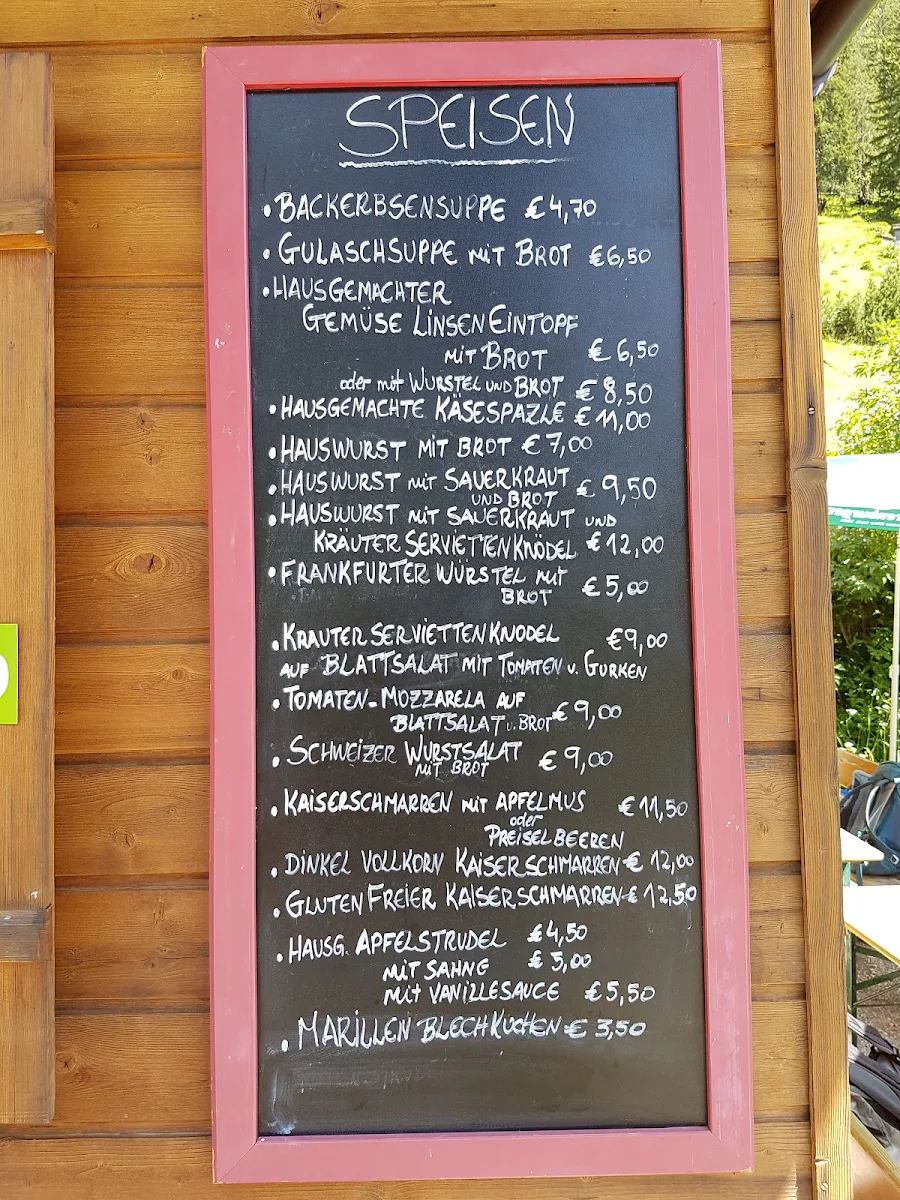 SPEISEN
• BACKERBSENSUPPE €4,70
• GULASCHSUPPE MIT BROT €6,50
• HAUSGEMACHTER
GEMÜSE LINSEN EINTOPF
MIT BROT € 6,50
oder mit WURSTEL UND BROT € 8,50
• HAUSGEMACHTE KÄSESPAZLE € 11,00
• HAUSWURST MIT BROT € 7,00
• HAUSWURST MIT SAUERKRAUT € 9,50
UND BROT
• HAUSWURST MIT SAUERKRAUT UND
KRÄUTER SERVIETTEN KNÖDEL € 12,00
• FRANKFURTER WÜRSTEL MIT
BROT € 5,00
• KRAUTER SERVIETTEN KNODEL €9,00
AUF BLATTSALAT MIT TOMATEN U. GURKEN
• TOMATEN-MOZZARELA AUF
BLATTSALAT U. BROT € 9,00
• SCHWEIZER WURSTSALAT € 9,00
MIT BROT
• KAISERSCHMARREN MIT APFELMUS € 11,50
oder
PREISELBEEREN
• DINKEL VOLLKORN KAISERSCHMARREN € 12,00
• GLUTEN FREIER KAISERSCHMARREN € 12,50
• HAUSG. APFELSTRUDEL € 4,50
MIT SAHNE € 5,00
MIT VANILLESAUCE € 5,50
• MARILLEN BLECHKUCHEN € 3,50